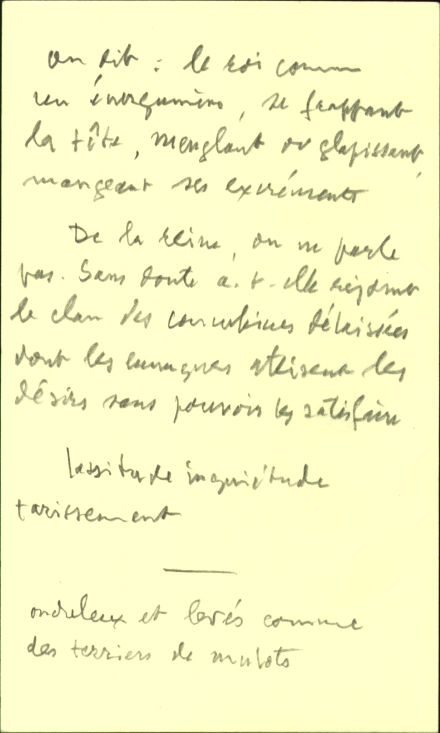 on dit : le roi comme
un énergumène, se frappant
la tête, meuglant ou glapissant,
mangeant ses excréments
De la reine, on ne parle
pas. Sans doute a-t-elle rejoint
le clan des concubines délaissées
dont les eunuques attisent les
désirs sans pouvoir les satisfaire
lassitude inquiétude
tarissement
onduleux et levés comme
des terriers de mulots